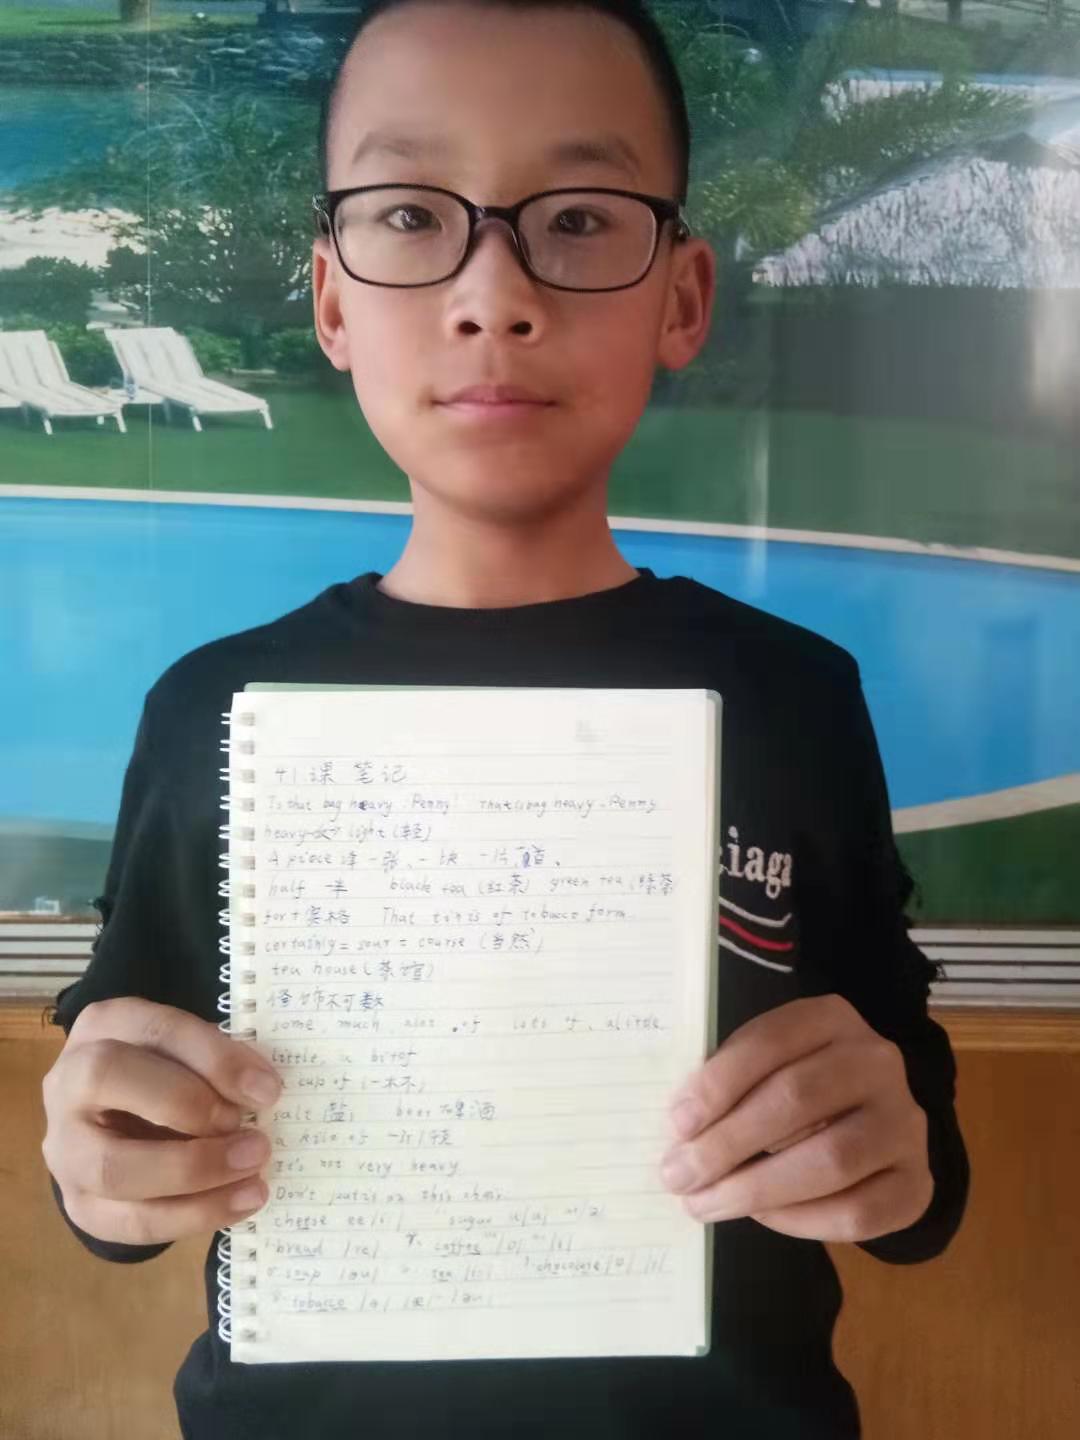 41课 笔记
Is that bag heavy, Penny? That is bag heavy, Penny
heavy light (轻)
A piece 一张、一块、一片
half 一半 black tea (红茶) green tea (绿茶
for+宾格 That tin is of tobacco form
certainly = sour = course (当然)
tea house (茶馆)
修饰不可数
some, much, alot of lots of, alittle,
little, a bitof
a cup of (一杯)
salt (盐) beer 啤酒
a kilo of 一斤/千克
It's not very heavy
Don't put is on this chair.
cheese ee /i/ sugar u/u/ /ə/
bread /re/ coffee /ɒ/ /i/
soap /əu/ tea /i:/ chocolate /ɒ/ /i/
tobacco /ə/ /æ/ /əu/
eiaga